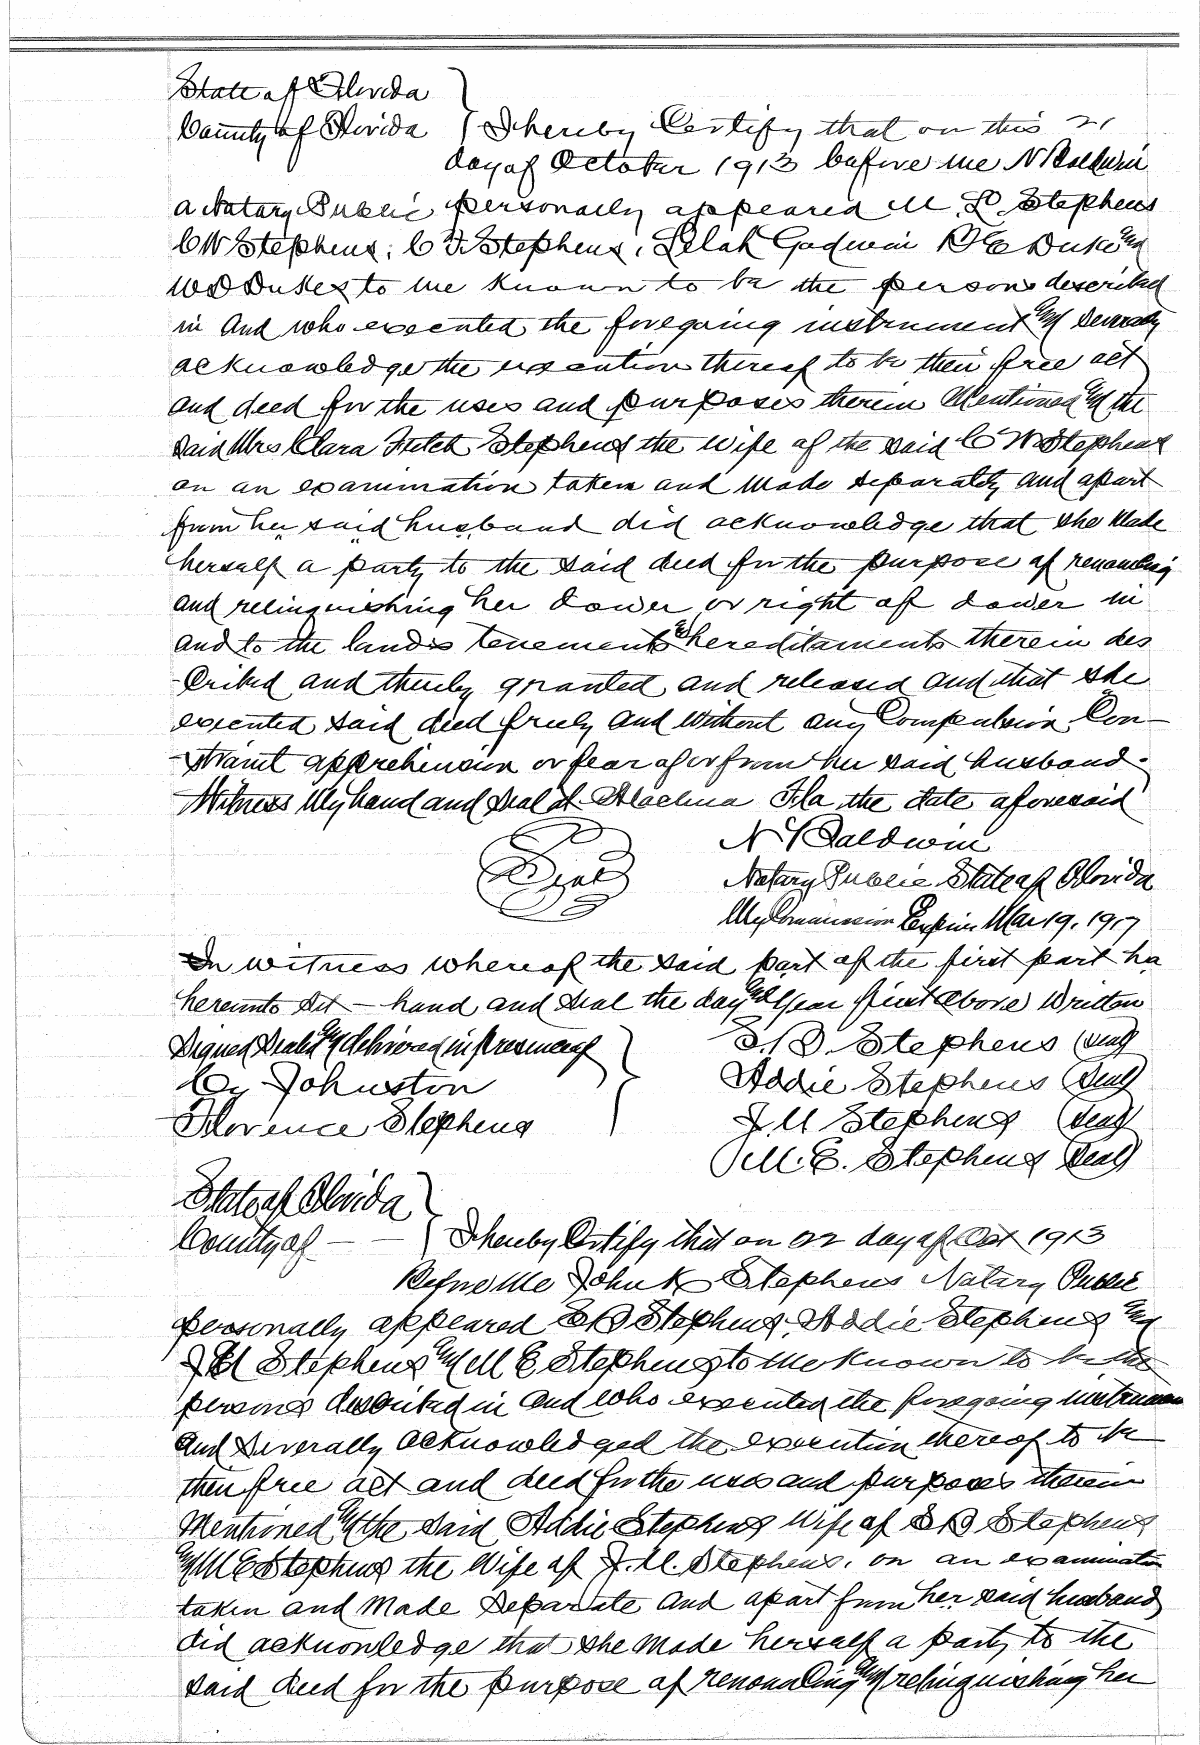 State of Florida
County of Florida } I hereby Certify that on this 21
day of October 1913 before me N Baldwin
a Notary Public personally appeared M. L. Stephens
C W Stephens, C F Stephens, Lelah Godwin D E Dukes and
W D Dukes to me known to be the persons described
in and who executed the foregoing instrument and severally
acknowledge the execution thereof to be their free act
and deed for the uses and purposes therein Mentioned and the
said Mrs Clara Fitch Stephens the wife of the said C W Stephens
on an examination taken and made separately and apart
from her said husband did acknowledge that she made
herself a party to the said deed for the purpose of renouncing
and relinquishing her dower or right of dower in
and to the lands tenements & hereditaments therein des
-cribed and thereby granted and released and that she
executed said deed freely and without any Compulsion Con-
-straint apprehension or fear of or from her said husband.
Witness My hand and seal at Alachua Fla the date aforesaid
Seal N Baldwin
Notary Public State of Florida
My Commission Expires Mar 19, 1917
In witness whereof the said part of the first part ha
hereunto set - hand and seal the day and Year first above Written
Signed Sealed and delivered in presence of } S. B. Stephens (seal)
Cy Johnston Addie Stephens (Seal)
Florence Stephens J. M Stephens (seal)
M. E. Stephens (Seal)
State of Florida
County of - - } I hereby Certify that on 22 day of Oct 1913
Before Me John K Stephens Notary Public
personally appeared S B Stephens, Addie Stephens and
J M Stephens and M E Stephens to me known to be the
persons described in and who executed the foregoing instrument
and severally acknowledged the execution thereof to be
their free act and deed for the uses and purposes therein
Mentioned and the said Addie Stephens Wife of S B Stephens
and M E Stephens the Wife of J. M. Stephens, on an examination
taken and made separate and apart from her said husband
did acknowledge that she made herself a party to the
said deed for the purpose of renouncing and relinquishing her